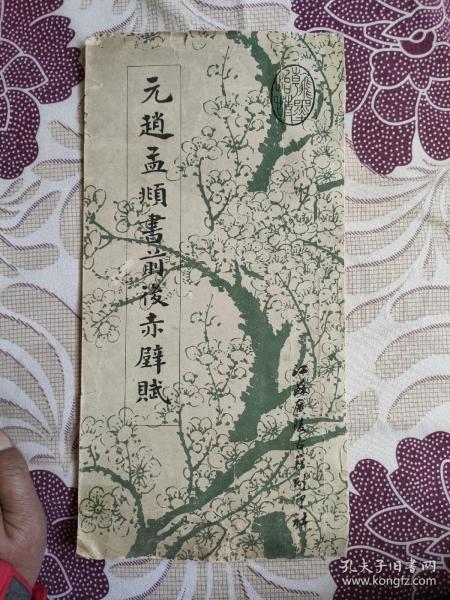 元趙孟頫書前後赤壁賦
江蘇廣陵古籍刻印社
孔夫子旧书网
www.kongfz.com